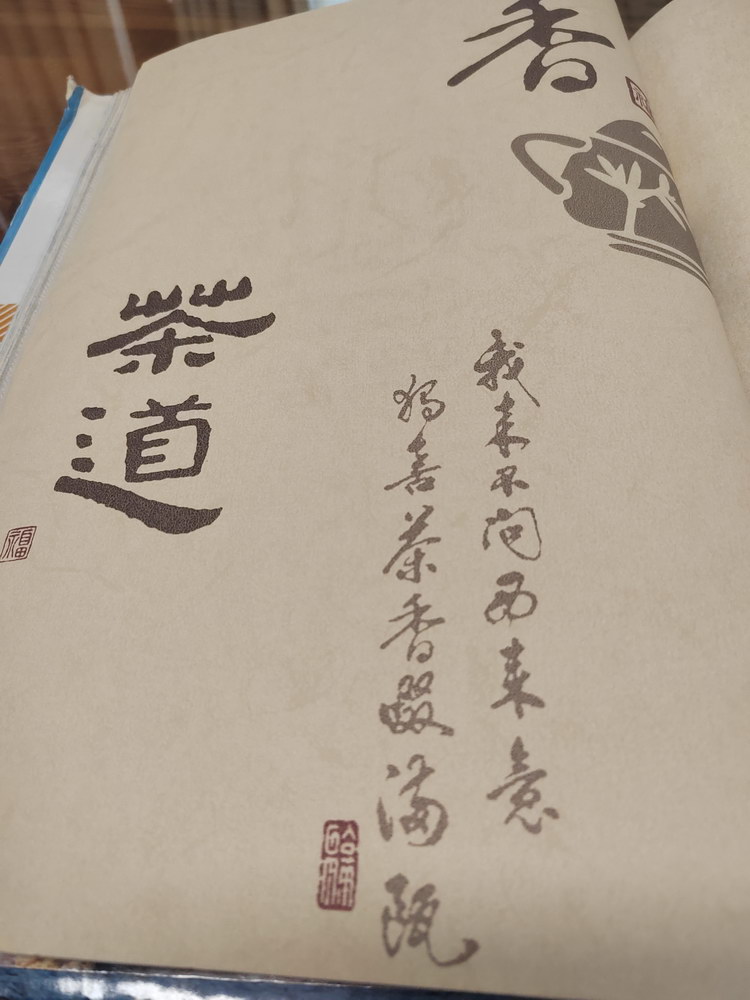 香
我来不问西来意
独喜茶香啜满瓯
茶道
福